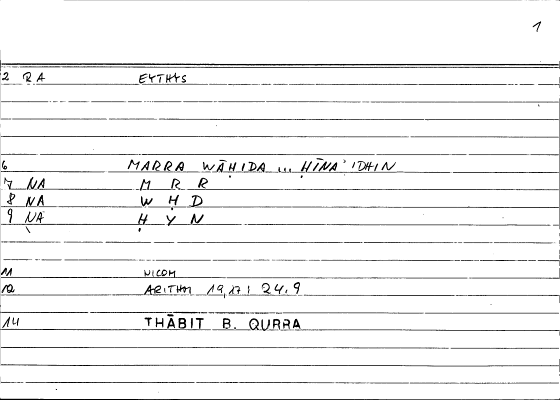 1
2 RA EYTHYS
6 MARRA WĀḤIDA ... ḤĪNA'IDHIN
7 NA M R R
8 NA W Ḥ D
9 NA Ḥ Y N
11 NICOM
12 ARITHM 19,17 : 24,9
14 THĀBIT B. QURRA